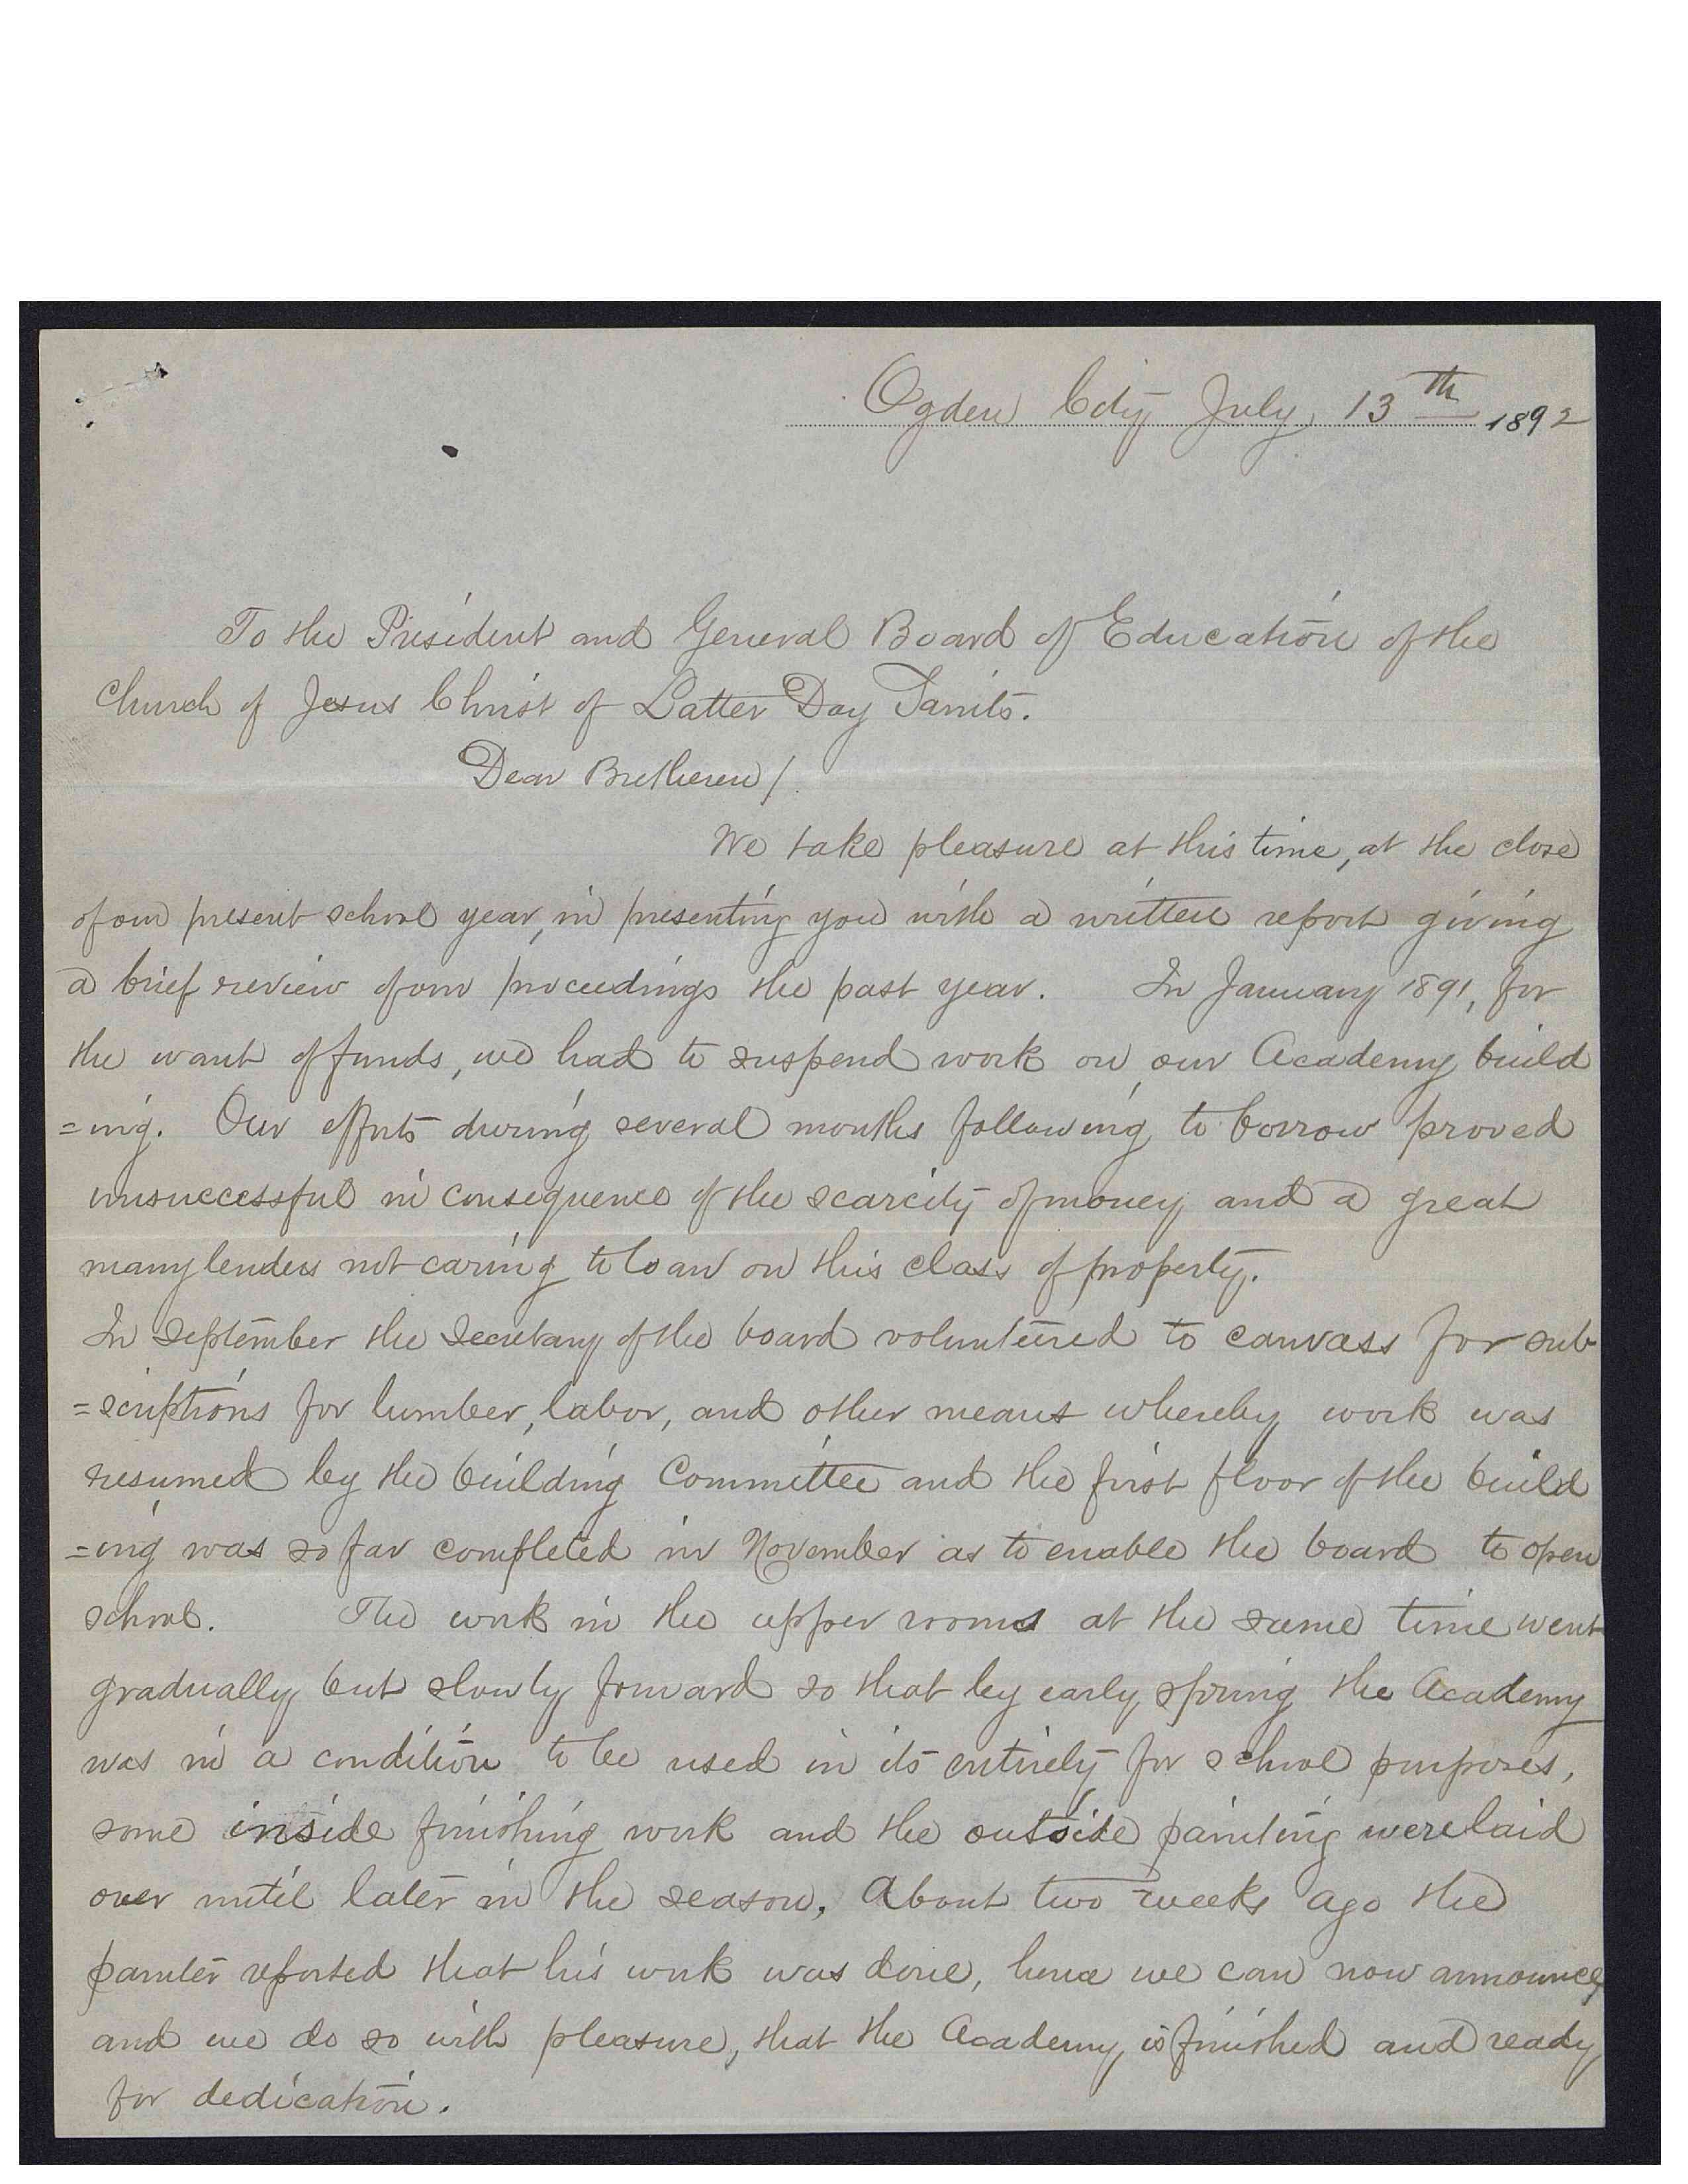 Ogden City July, 13th 1892
To the President and General Board of Education of the
Church of Jesus Christ of Latter Day Saints.
Dear Bretheren/.
We take pleasure at this time, at the close
of our present school year, in presenting you with a written report giving
a brief review of our proceedings the past year. In January 1891, for
the want of funds, we had to suspend work on our Academy build
=ing. Our efforts during several months following to borrow proved
unsuccessful in consequence of the scarcity of money and a great
many lenders not caring to loan on this class of property.
In September the Secretary of the board volunteered to canvass for sub
=scriptions for lumber, labor, and other means whereby work was
resumed by the building Committee and the first floor of the build
=ing was so far completed in November as to enable the board to open
school. The work in the upper rooms at the same time went
gradually but slowly forward so that by early spring the Academy
was in a condition to be used in its entirely for school purposes,
some inside finishing work and the outside painting were laid
over until later in the season. About two weeks ago the
painter reported that his work was done, hence we can now announce,
and we do so with pleasure, that the Academy is finished and ready
for dedication.